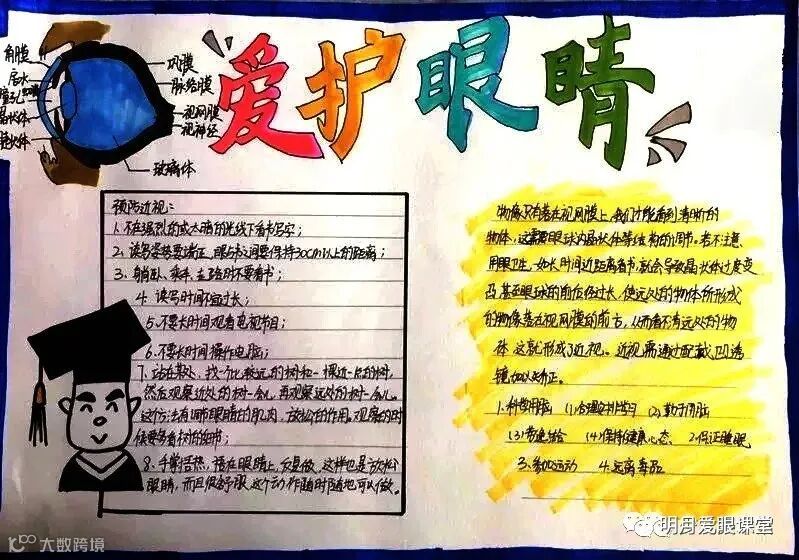 爱护眼睛
角膜
房水
瞳孔
晶状体
睫状体
巩膜
脉络膜
视网膜
视神经
玻璃体
预防近视:
1、不在强烈的或太暗的光线下看书写字;
2、读写姿势要端正,眼与书之间要保持30cm以上的距离;
3、躺卧、乘车、走路时不要看书;
4、读写时间不宜过长;
5、不要长时间观看电视节目;
6、不要长时间操作电脑;
7、站在某处、找一个比较远的树和一棵近一点的树,
然后观察近处的树一会儿,再观察远处的树一会儿。
这方法有调节眼睛的肌肉,放松的作用。观察的时
候要多看树的细节;
8、手掌搓热,捂在眼睛上,反复做,这样也是放松
眼睛,而且很舒服,这个动作随时随地可以做。
物像只有落在视网膜上,我们才能看到清晰的
物体,这需要眼球内晶状体等结构的调节。若不注意
用眼卫生,如长时间近距离看书,就会导致晶状体过度变
凸,甚至眼球的前后径过长,使远处的物体所形成
的物像落在视网膜的前方,从而看不清远处的物
体,这就形成了近视。近视需通过配戴凹透
镜加以矫正。
1.科学用脑 (1)合理安排学习 (2)勤于用脑
(3)劳逸结合 (4)保持健康心态 2.保证睡眠
3.参加运动 4.远离毒品
大数跨境
明月爱眼课堂